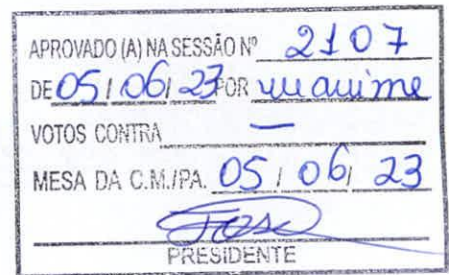 APROVADO (A) NA SESSÃO Nº 2107
DE 05 / 06 / 23 POR unanime
VOTOS CONTRA —
MESA DA C.M./PA. 05 / 06 / 23
PRESIDENTE